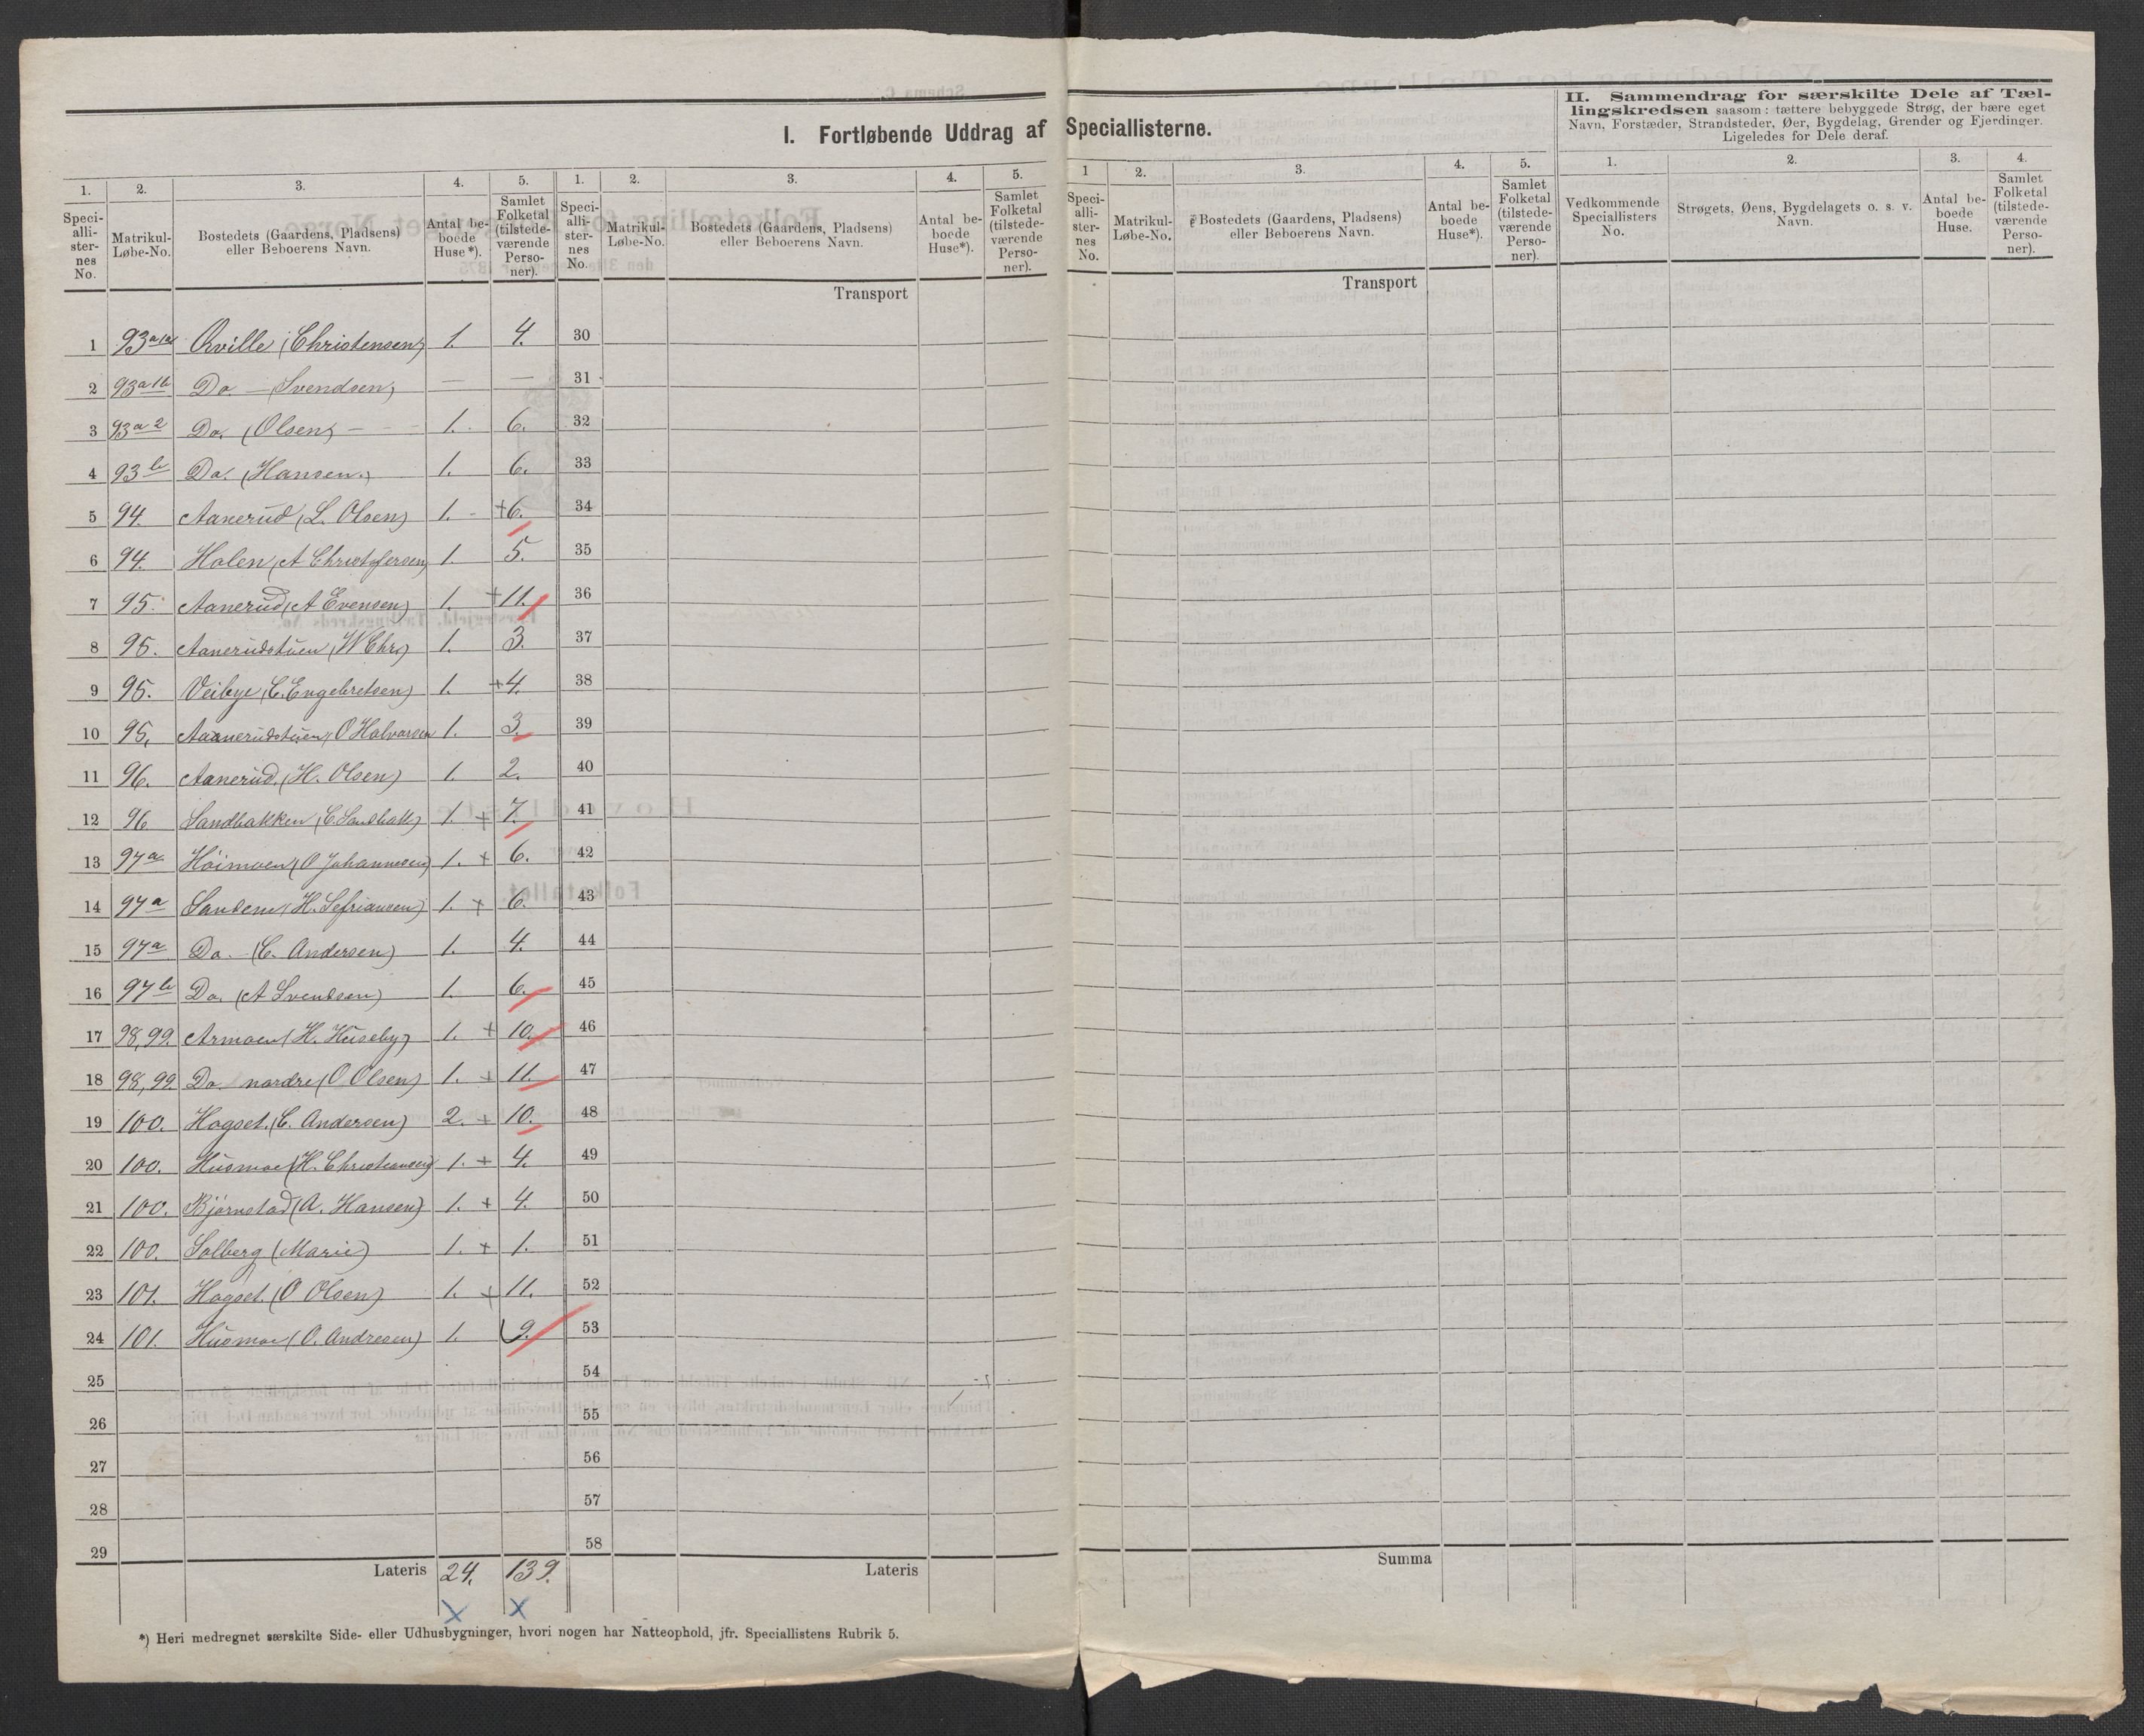 I. Fortløbende Uddrag af Speciallisterne.
II. Sammendrag for særskilte Dele af Tæl-
lingskredsen saasom: tættere bebyggede Strøg, der bære eget
Navn, Forstæder, Strandsteder, Øer, Bygdelag, Grender og Fjerdinger.
Ligeledes for Dele deraf.
1. 2. 3. 4. 5. 1. 2. 3. 4. 5. 1 2. 3. 4. 5. 1. 2. 3. 4.
Speci-alli-ster-nes No. Matrikul-Løbe-No. Bostedets (Gaardens, Pladsens) eller Beboerens Navn. Antal be-boede Huse*). Samlet Folketal (tilstede-værende Perso-ner).
Speci-alli-ster-nes No. Matrikul-Løbe-No. Bostedets (Gaardens, Pladsens) eller Beboerens Navn. Antal be-boede Huse*). Samlet Folketal (tilstede-værende Perso-ner).
Speci-alli-ster-nes No. Matrikul-Løbe-No. Bostedets (Gaardens, Pladsens) eller Beboerens Navn. Antal be-boede Huse*). Samlet Folketal (tilstede-værende Perso-ner).
Vedkommende Speciallisters No. Strøgets, Øens, Bygdelagets o. s. v. Navn. Antal be-boede Huse. Samlet Folketal (tilstede-værende Perso-ner).
Transport Transport
1 93a1a (Christensen) 1. 4. 30
2 93a1b Do. — (Svendsen) — — 31
3 93a2 Do. (Olsen) — 1. 6. 32
4 93b Do. (Hansen.) 1. 6. 33
5 94. Aanerud (L. Olsen) 1. +6. 34
6 94. Holen (A Christofersen) 1. 5. 35
7 95. Aanerud (A Evensen) 1. +11. 36
8 95. Aanerudstuen (W Chr) 1. 3. 37
9 95. Veibye (C. Engebretsen) 1. +4. 38
10 95. Aaanerudstuen (O Halvorsen 1. 3. 39
11 96. Aanerud. (H. Olsen) 1. 2. 40
12 96 Sandbakken (C. Sandbakk) 1. + 7. 41
13 97a Höimoen (O Johannesen) 1. + 6. 42
14 97a Sandene (H. Sefriansen) 1. + 6. 43
15 97a Do. (C. Andersen) 1. 4. 44
16 97b Do. (A Svendsen) 1. 6. 45
17 98,99. Armoen (H. Huseby) 1. + 10. 46
18 98,99. Do. nordre (O Olsen) 1. + 11. 47
19 100. Hogset. (C. Andersen) 2. + 10. 48
20 100. Husmoe (H. Christiansen) 1. + 4. 49
21 100. Björnstad (A. Hansen) 1. + 4. 50
22 100. Solberg (Marie) 1. + 1. 51
23 101. Hogset. (O Olsen) 1. + 11. 52
24 101. Husmoe (O. Andresen) 1. 9. 53
25 54
26 55
27 56
28 57
29 58
Lateris 24. 139. Lateris Summa
x x
*) Heri medregnet særskilte Side- eller Udhusbygninger, hvori nogen har Natteophold, jfr. Speciallistens Rubrik 5.